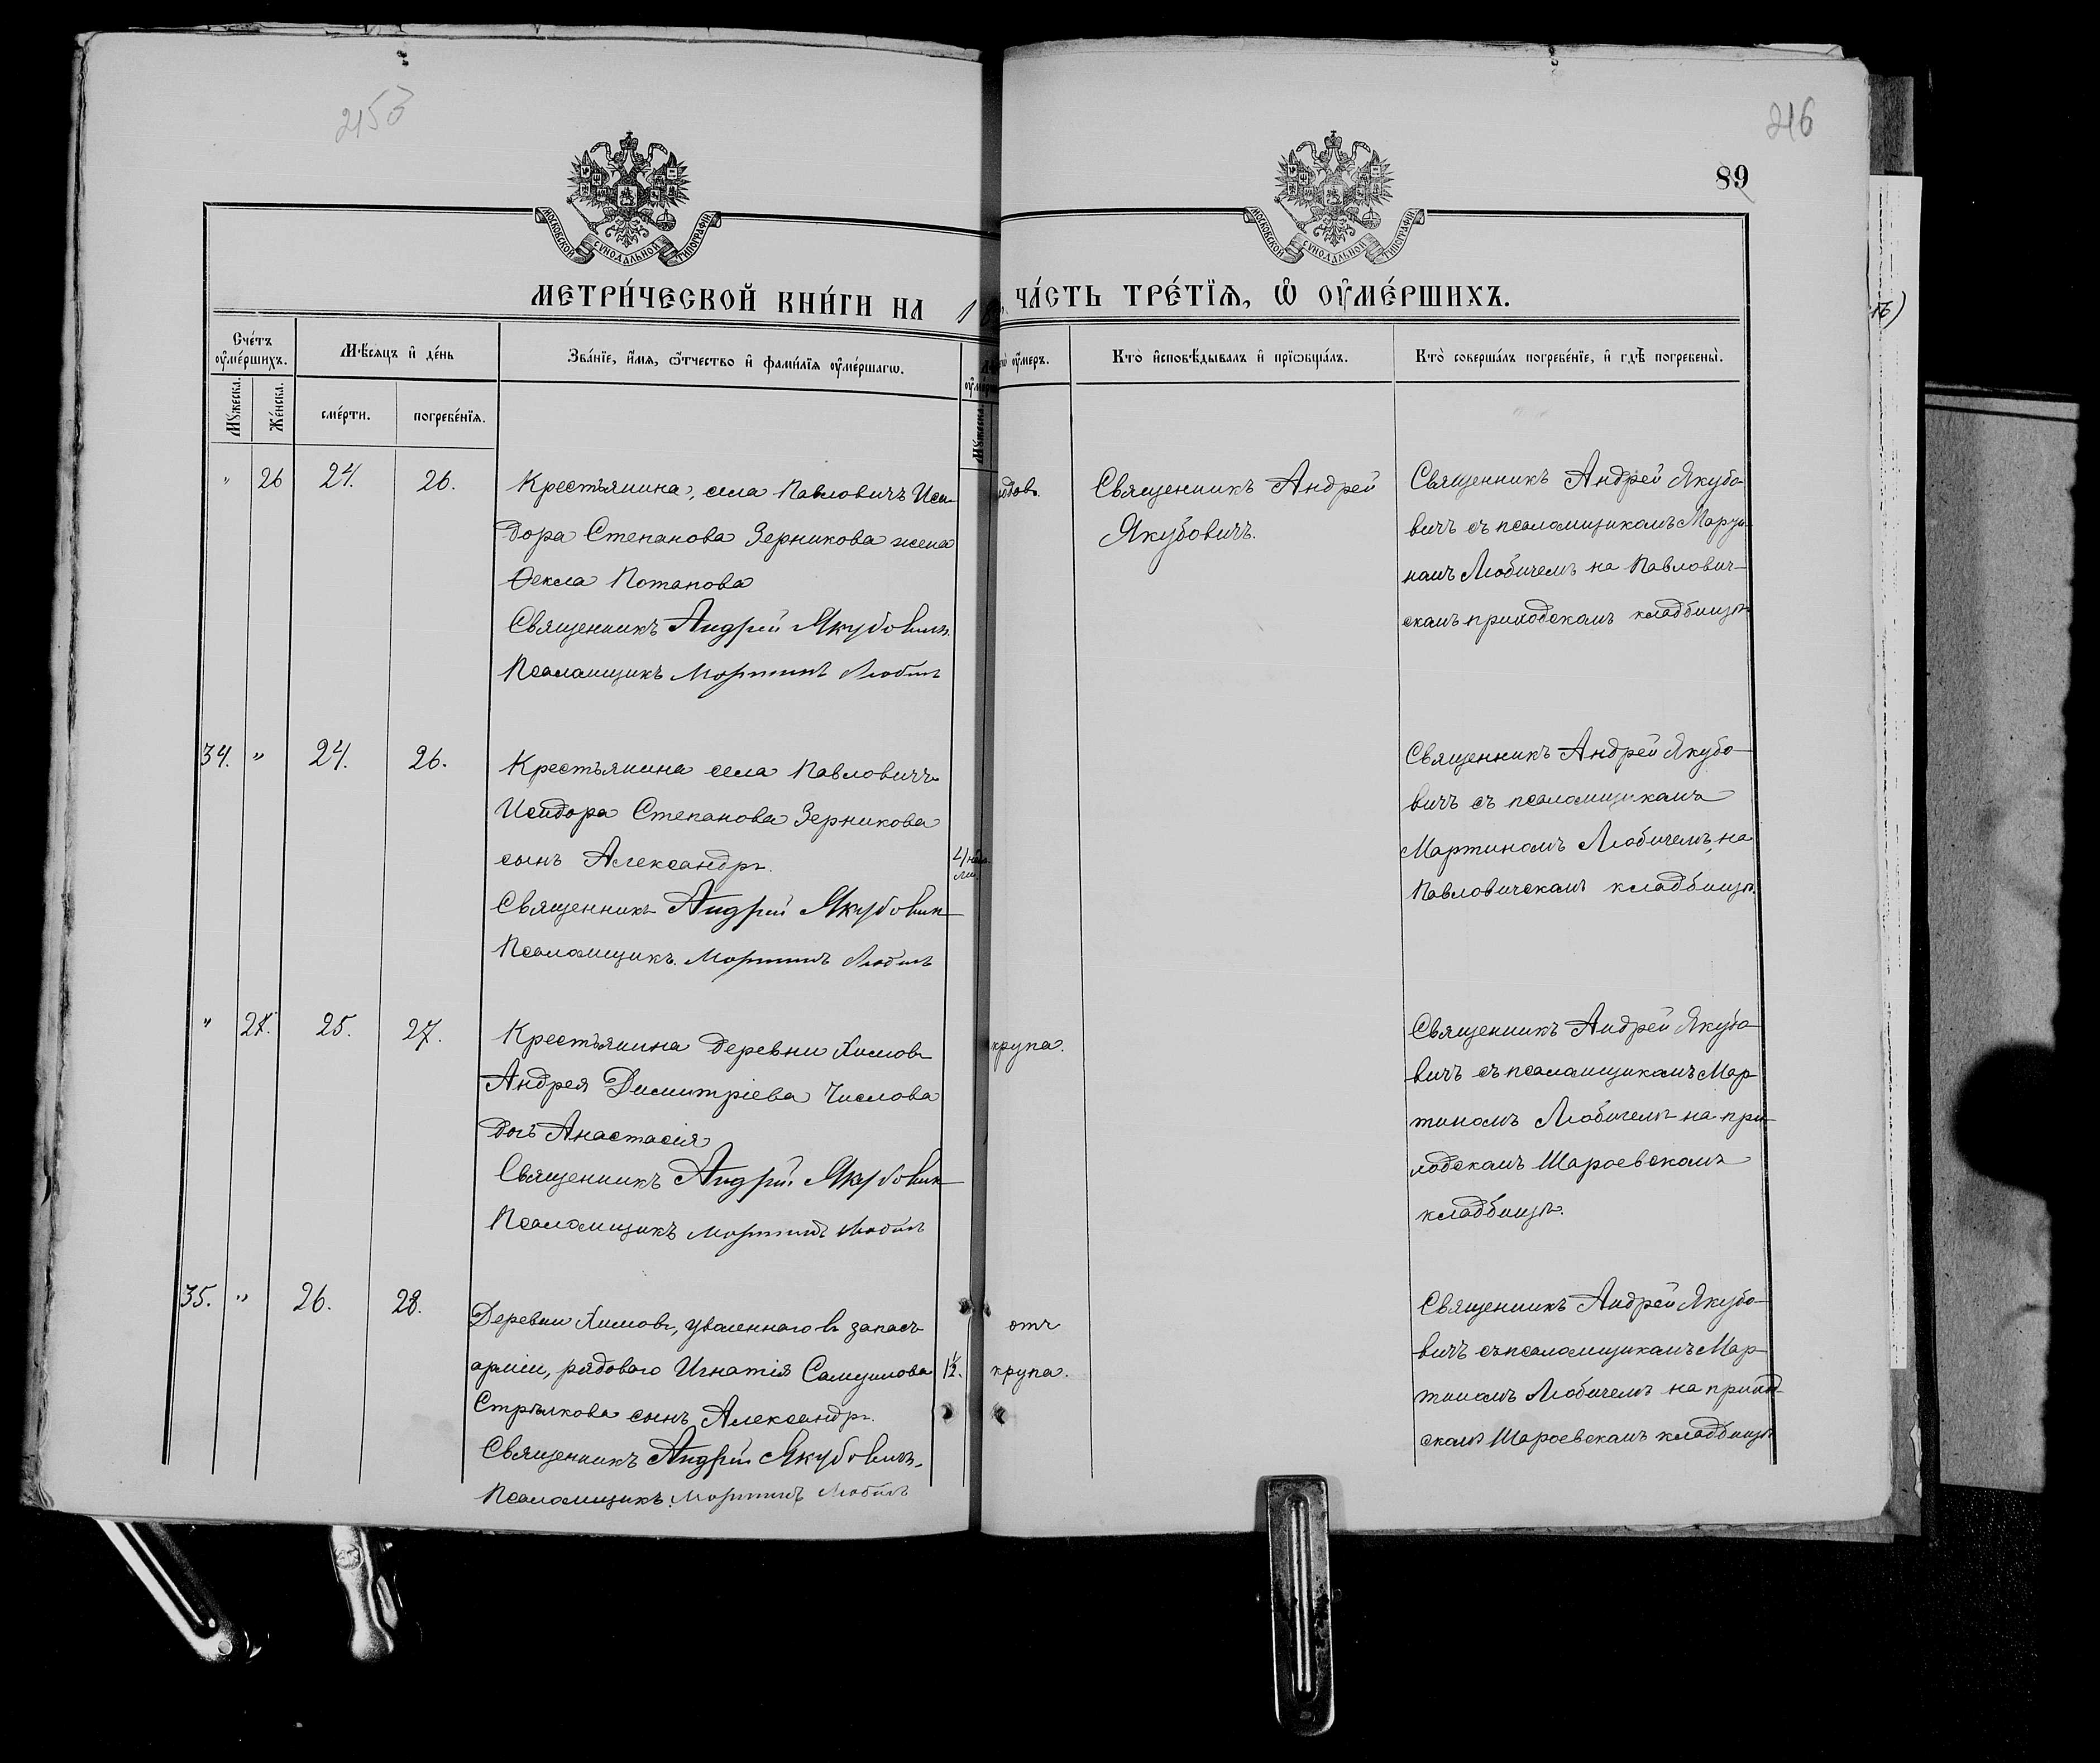 215 об
216
89
МОСКОВСКОЙ СѴНОДАЛЬНОЙ ТИПОГРАФІИ
МОСКОВСКОЙ СѴНОДАЛЬНОЙ ТИПОГРАФІИ
МЕТРИ́ЧЕСКОЙ КНИ́ГИ НА 18
ЧА́СТЬ ТРЕ́ТЇѦ, Ѡ ОУМЕ́РШИХЪ.
Сче́тъ оуме́ршихъ.
Мꙋжеска.
Же́нска.
Мѣ́сѧцъ и де́нь
сме́рти.
погребе́нїѧ.
Зва́нїе, и́мѧ, ѻ́тчество и фами́лїѧ оуме́ршагѡ.
Мꙋжеска.
оумеръ.
Кто̀ исповѣ́дывалъ и прїѡбща́лъ.
Кто̀ соверша́лъ погребе́нїе, и гдѣ̀ погребены̀.
" 26 24. 26.
Крестьянина, села Павловичъ Иси-
дора Степанова Зерникова жена
Ѳекла Потапова
Священникъ Андрей Якубовичъ.
Псаломщикъ Мартинъ Любичъ
родовъ.
Священникъ Андрей
Якубовичъ.
Священникъ Андрей Якубо-
вичъ съ псаломщикомъ Марти-
номъ Любичемъ на Павлович-
скомъ приходскомъ кладбищѣ
34. " 24. 26.
Крестьянина села Павловичъ
Исидора Степанова Зерникова
сынъ Александръ.
Священникъ Андрей Якубовичъ
Псаломщикъ. Мартинъ Любичъ
4 недѣ-
ли.
Священникъ Андрей Якубо-
вичъ съ псаломщикомъ
Мартиномъ Любичемъ, на
Павловичскомъ кладбищѣ.
" 27. 25. 27.
Крестьянина деревни Хиловъ
Андрея Димитріева Числова
дочь Анастасія
Священникъ Андрей Якубовичъ
Псаломщикъ Мартинъ Любичъ
крупа.
Священникъ Андрей Якубо-
вичъ съ псаломщикомъ Мар-
тиномъ Любичемъ на при-
ходскомъ Шароевскомъ
кладбищѣ.
35. " 26. 28.
Деревни Хиловъ, уволеннаго въ запасъ
арміи, рядового Игнатія Самуилова
Стрѣлкова сынъ Александръ.
Священникъ Андрей Якубовичъ.
Псаломщикъ. Мартинъ Любичъ
1½.
отъ
крупа.
Священникъ Андрей Якубо-
вичъ съ псаломщикомъ Мар-
тиномъ Любичемъ на приход-
скомъ Шароевскомъ кладбищѣ